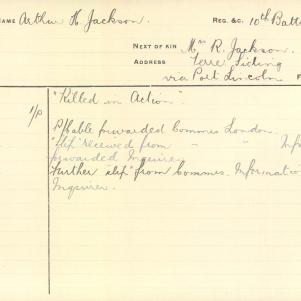 NAME Arthur H. Jackson. REG. &C. 10th Batt
NEXT OF KIN Mrs R. Jackson.
ADDRESS Yeere Siding
via Port Lincoln F
"Killed in Action".
1/P
P/Cable forwarded Commes London.
"slip" received from " " Info
forwarded Inquirer.
Further slip" from Commes. Informatio
Inquirer.